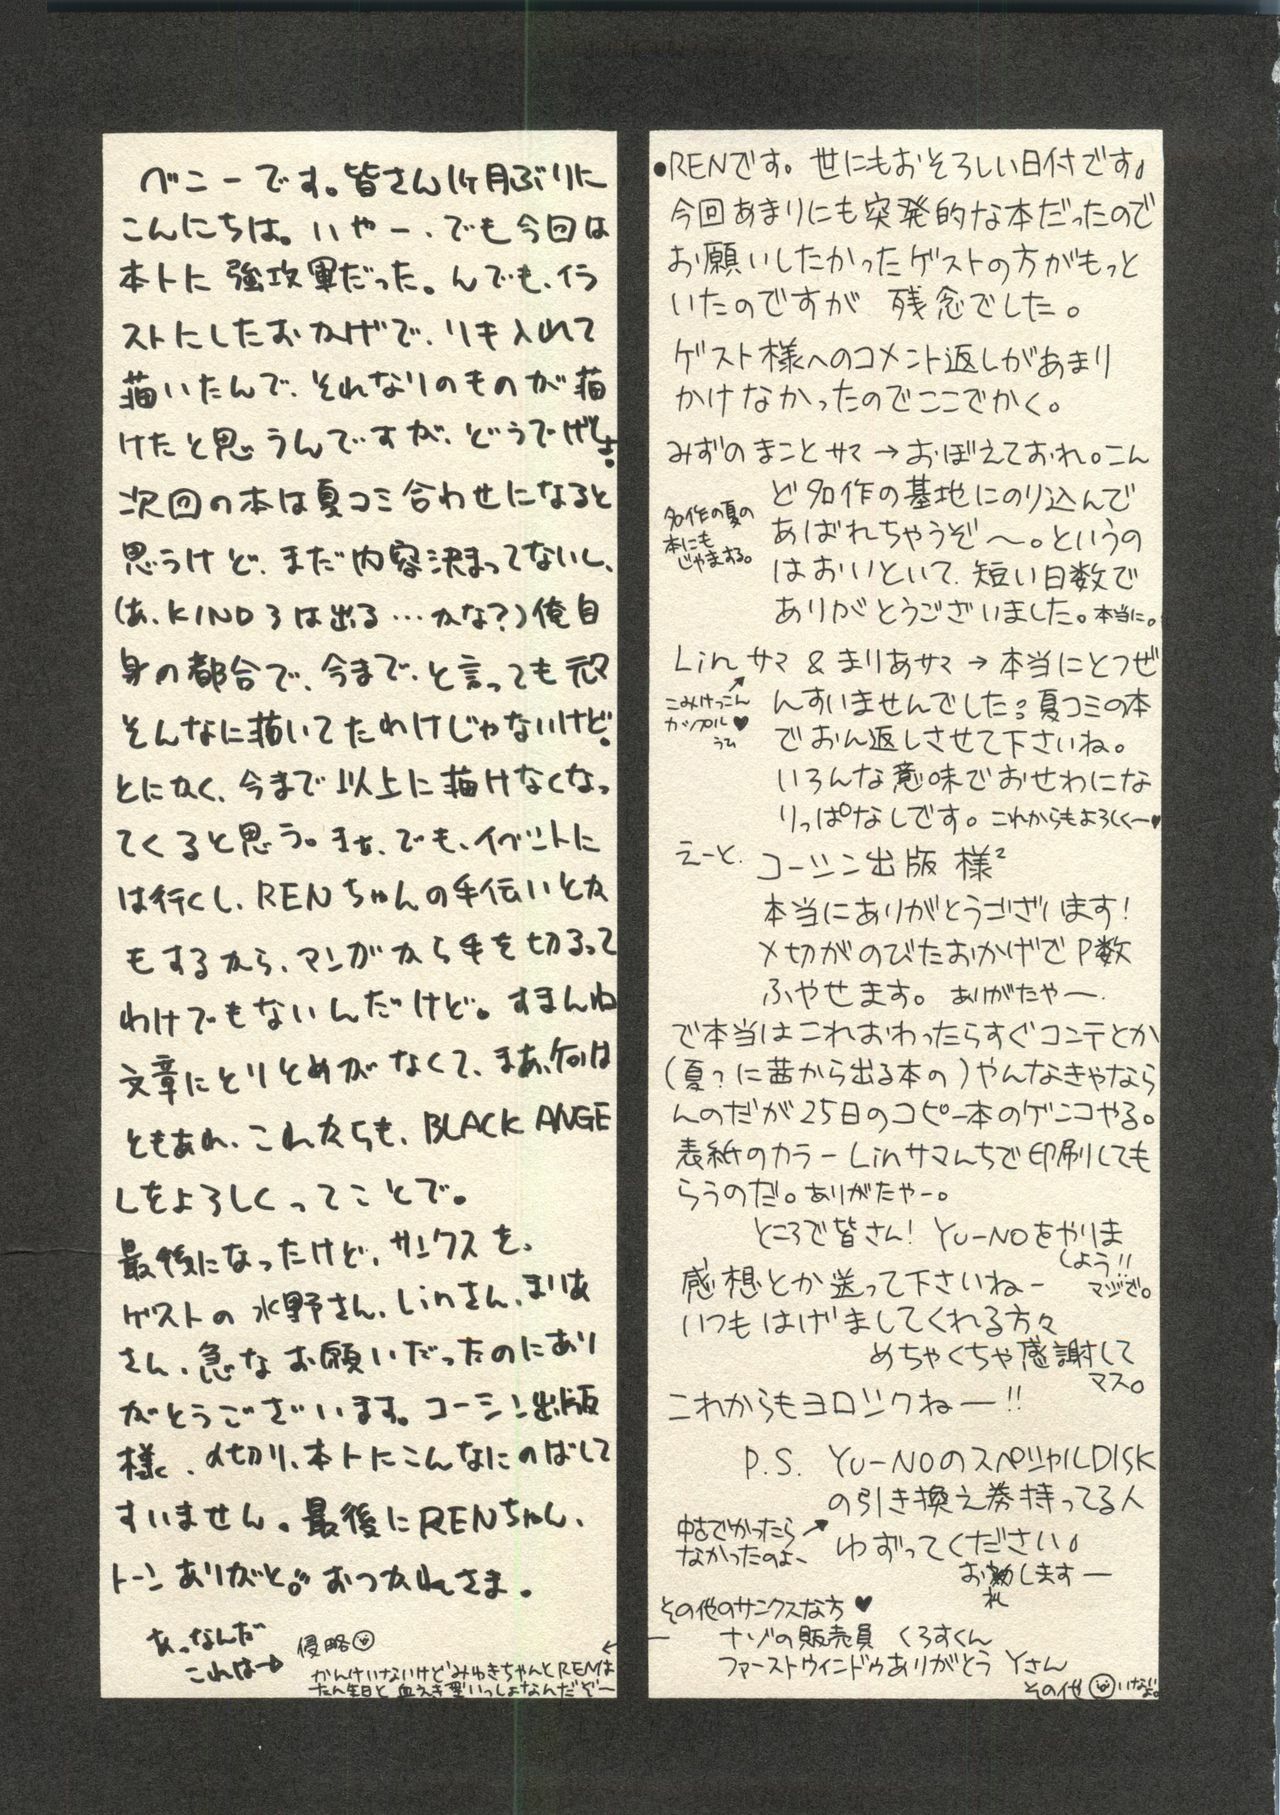 ベニーです。皆さん1ヶ月ぶりに
こんにちは。いやー、でも今回は
本トに強攻軍だった。んでも、イラ
ストにしたおかげで、リキ入れて
描いたんで、それなりのものが描
けたと思うんですが、どうでげしょ。
次回の本は夏コミ合わせになると
思うけど、まだ内容決まってないし、
(あ、KIND3は出る…かな?)俺自
身の都合で、今まで、と言っても元々
そんなに描いてたわけじゃないけど。
とにかく、今まで以上に描けなくなっ
てくると思う。まぁ、でも、イベントに
は行くし、RENちゃんの手伝いとか
もするから、マンガから手を切るって
わけでもないんだけど。すまんね
文章にとりとめがなくて、まあ、何は
ともあれ、これからも、BLACK ANGE
Lをよろしくってことで。
最後になったけど、サンクスを、
ゲストの水野さん、Linさん、まりあ
さん、急なお願いだったのにあり
がとうございます。コーシン出版
様、〆切り、本トにこんなにのばして
すいません。最後にRENちゃん、
トーンありがと。おつかれさま。
あっなんだ
これは→
侵略
かんけいないけどみゆきちゃんとRENは
たん生日と血えき型いっしょなんだぞー
●RENです。世にもおそろしい日付です。
今回あまりにも突発的な本だったので
お願いしたかったゲストの方がもっと
いたのですが 残念でした。
ゲスト様へのコメント返しがあまり
かけなかったのでここでかく。
みずのまことサマ→おぼえておれ。こん
ど名作の基地にのり込んで
あばれちゃうぞ〜。というの
はおいといて、短い日数で
ありがとうございました。本当に。
名作の夏の
本にも
じゃまする。
Linサマ & まりあサマ→本当にとつぜ
んすいませんでした?夏コミの本
でおん返しさせて下さいね。
いろんな意味でおせわにな
りっぱなしです。これからもよろしくー♥
こみけっこん
カップル♥
うふ
えーと、コーシン出版 様²
本当にありがとうございます!
〆切がのびたおかげでP数
ふやせます。ありがたやー.
で本当はこれおわったらすぐコンテとか
(夏?に茜から出る本の)やんなきゃなら
んのだが25日のコピー本のゲンコやる。
表紙のカラーLinサマんちで印刷しても
らうのだ。ありがたやー。
ところで皆さん! YU-NOをやりま
しょう!!
マジで。
感想とか送って下さいねー
いつもはげましてくれる方々
めちゃくちゃ感謝して
マス。
これからもヨロシクねー!!
P.S. YU-NOのスペシャルDISK
の引き換え券持ってる人
ゆずってください。
お礼しますー
中古でかったら
なかったのよ、
その他のサンクスな方♥
ナゾの販売員 くろすくん
ファーストウインドゥありがとう Yさん
その他 いないよ。